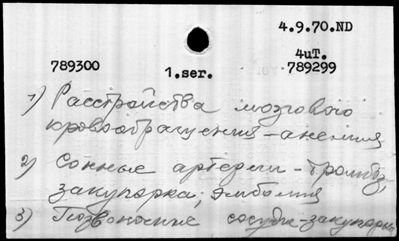 4.9.70.ND
4uT.
789300 1.ser. 789299
1) Расстройства мозгового
кровообращения - анемия
2) Сонные артерии - тромбоз,
закупорка; эмболия
3) Позвоночные сосуды - закупорка